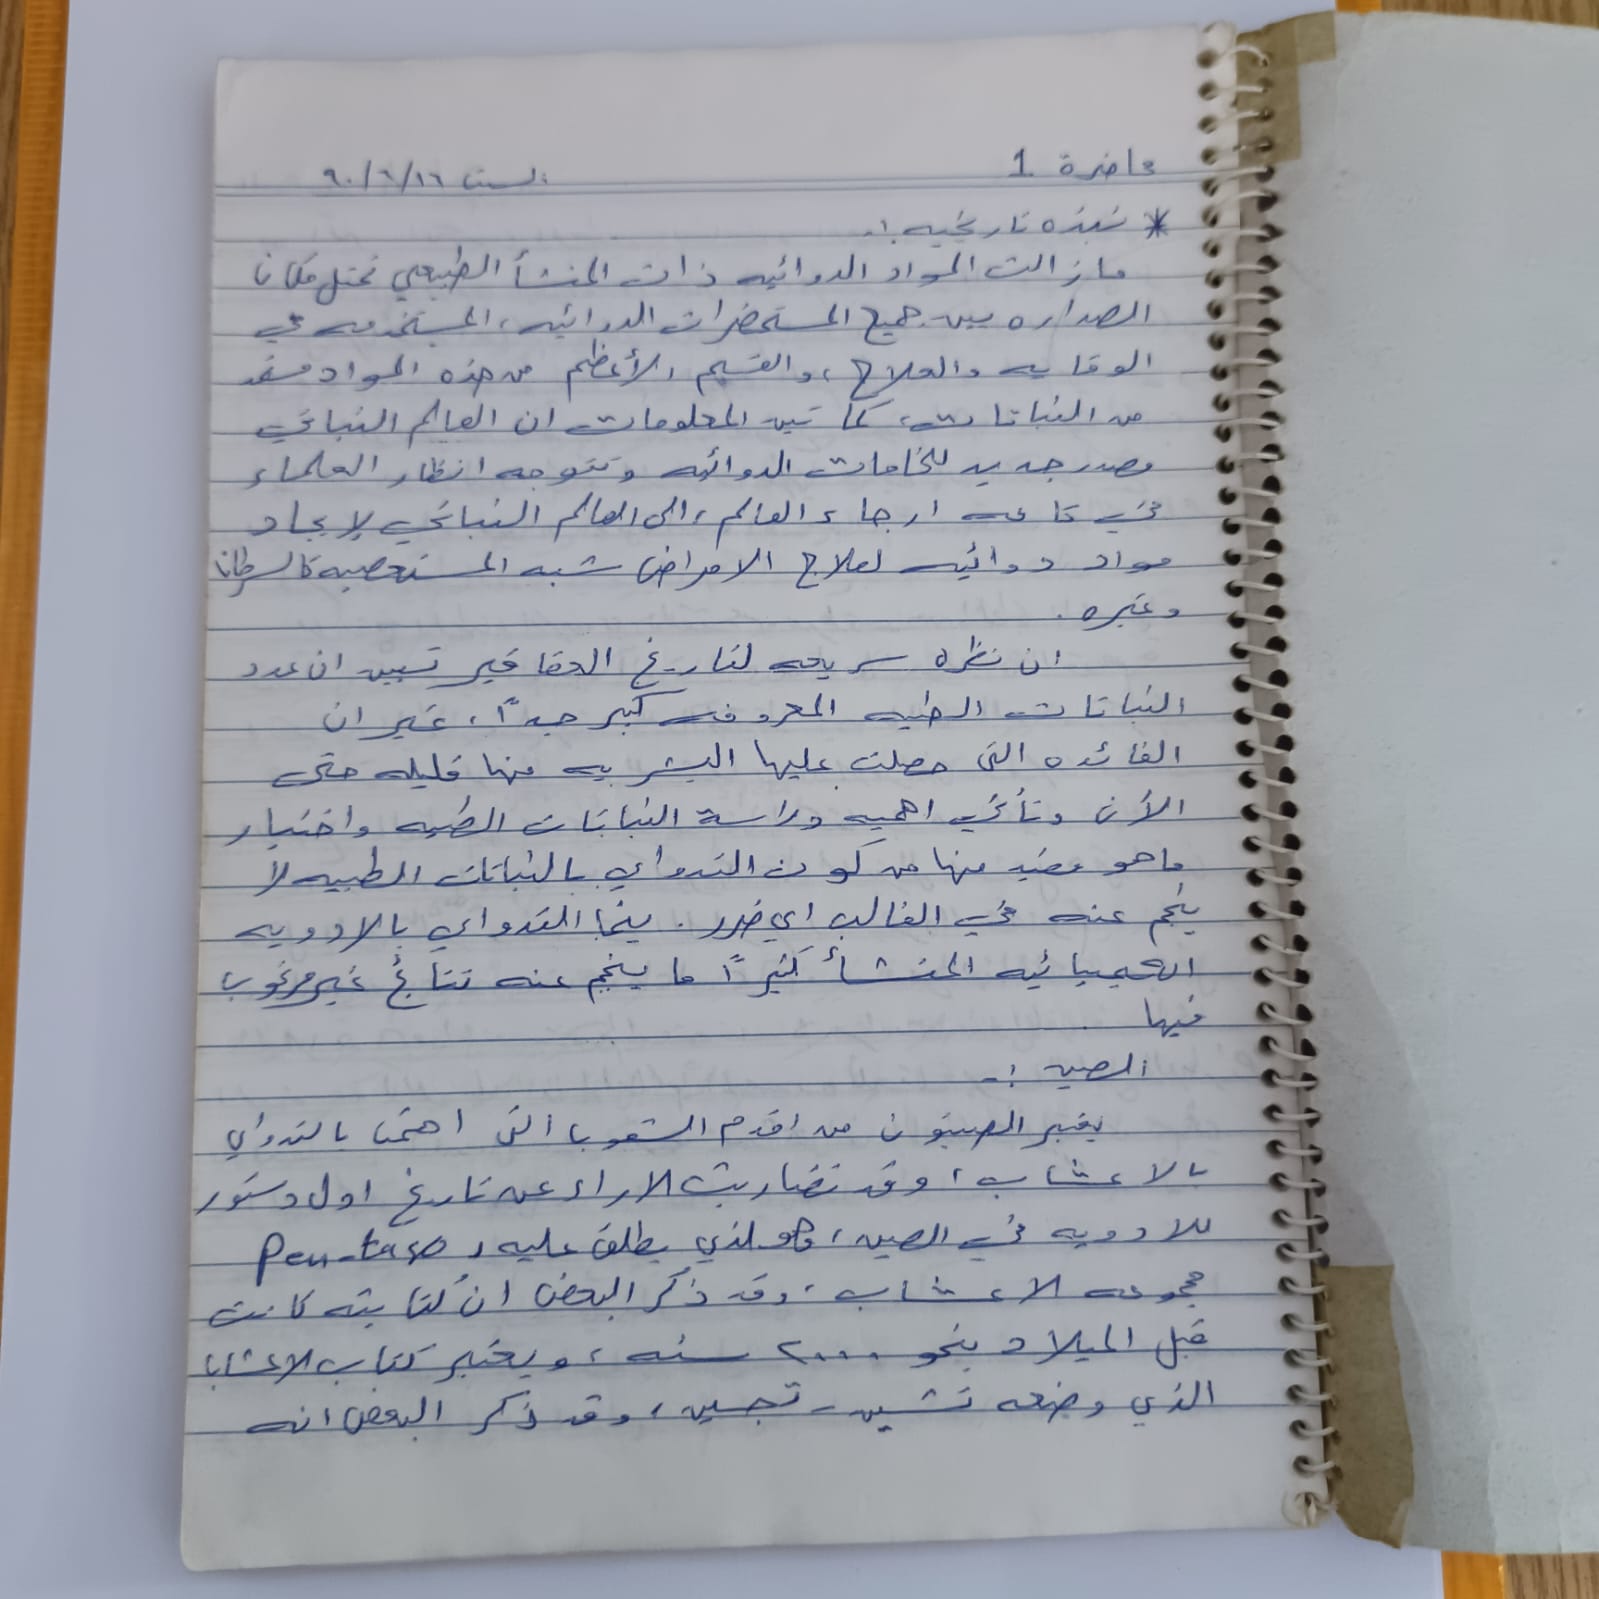 محاضرة 1
السبت ١٦/٦/٩٠
* نبذه تاريخيه :-
ما زالت المواد الدوائيه ذات المنشأ الطبيعي تحتل مكان
الصداره بين جميع المستحضرات الدوائيه، المستخدمه في
الوقايه والعلاج، والقسم الأعظم من هذه المواد مستمد
من النباتات، كما تبين المعلومات ان العالم النباتي
مصدر جديد للخامات الدوائيه وتتوجه انظار العلماء
في كافه ارجاء العالم، الى العالم النباتي لإيجاد
مواد دوائيه لعلاج الامراض شبه المستعصيه كالسرطان
وغيره.
ان نظره سريعه لتاريخ العقاقير تبين ان عدد
النباتات الطبيه المعروفه كبير جداً، غير ان
الفائده التي حصلت عليها البشريه منها قليله حتى
الأن وتأتي اهميه دراسة النباتات الطبيه واختيار
ماهو مفيد منها من كون التدواي بالنباتات الطبيه لا
ينجم عنه في الغالب اي ضرر. بينما التدواي بالادويه
الكيميائيه المنشأ كثيراً ما ينجم عنه نتائج غير مرغوب
فيها
الصين :-
يعتبر الصينيون من اقدم الشعوب التي اهتمت بالتدواي
بالاعشاب، وقد تضاربت الاراء عن تاريخ اول دستور
للادويه في الصين، وهو الذي يطلق عليه Pen-taso
مجموعه الاعشاب، وقد ذكر البعض انُ كتابته كانت
قبل الميلاد بنحو ٢٠٠٠ سنه، ويعتبر كتاب الاعشاب
الذي وضعه تشين - تجسين، وقد ذكر البعض انه